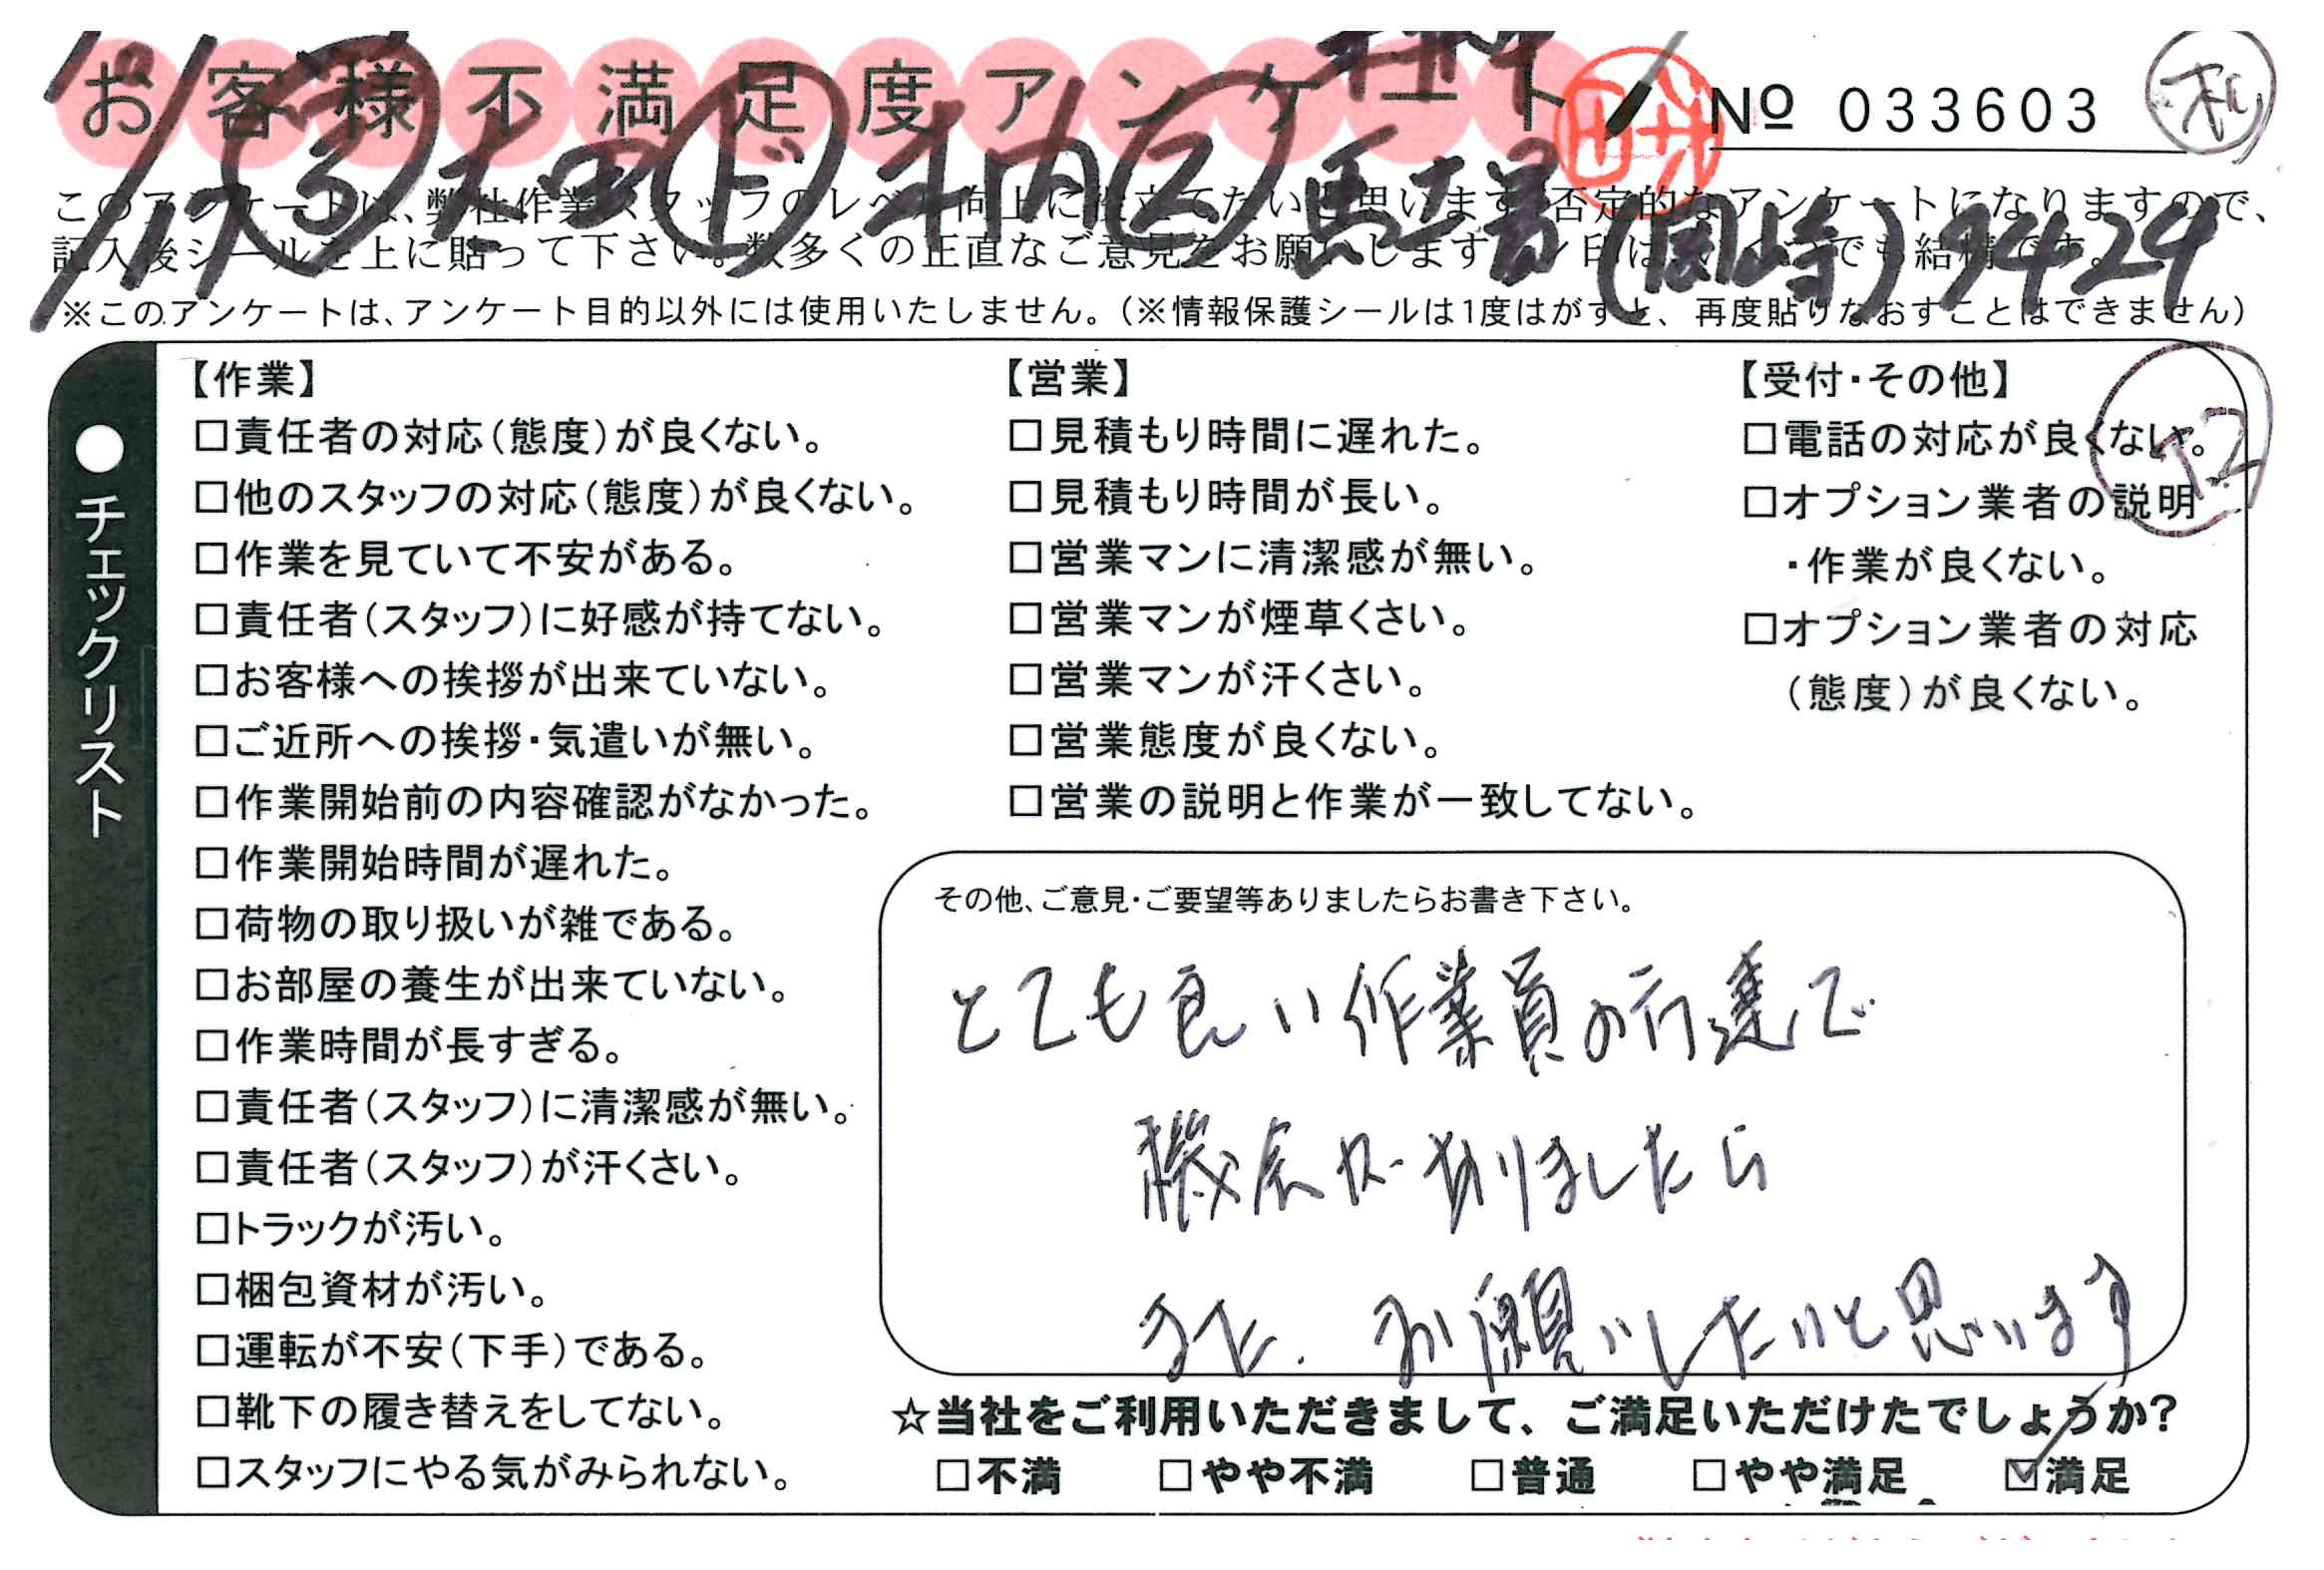 お客様不満足度アンケート
№ 033603
札
11/17 ㋺ 太田 ㋣ 木内 ② 馬場 (岡崎) 9424
このアンケートは、弊社作業スタッフのレベル向上に役立てたいと思います。否定的なアンケートになりますので、
記入後シールを上に貼って下さい。数多くの正直なご意見をお願いします。でも結構です。
※このアンケートは、アンケート目的以外には使用いたしません。(※情報保護シールは1度はがすと、再度貼りなおすことはできません)
●チェックリスト
【作業】
□責任者の対応(態度)が良くない。
□他のスタッフの対応(態度)が良くない。
□作業を見ていて不安がある。
□責任者(スタッフ)に好感が持てない。
□お客様への挨拶が出来ていない。
□ご近所への挨拶・気遣いが無い。
□作業開始前の内容確認がなかった。
□作業開始時間が遅れた。
□荷物の取り扱いが雑である。
□お部屋の養生が出来ていない。
□作業時間が長すぎる。
□責任者(スタッフ)に清潔感が無い。
□責任者(スタッフ)が汗くさい。
□トラックが汚い。
□梱包資材が汚い。
□運転が不安(下手)である。
□靴下の履き替えをしてない。
□スタッフにやる気がみられない。
【営業】
□見積もり時間に遅れた。
□見積もり時間が長い。
□営業マンに清潔感が無い。
□営業マンが煙草くさい。
□営業マンが汗くさい。
□営業態度が良くない。
□営業の説明と作業が一致してない。
【受付・その他】
□電話の対応が良くない。
□オプション業者の説明
・作業が良くない。
□オプション業者の対応
(態度)が良くない。
その他、ご意見・ご要望等ありましたらお書き下さい。
とても良い作業員の方達で
機会がありましたら
また、お願いしたいと思います
☆当社をご利用いただきまして、ご満足いただけたでしょうか?
□不満 □やや不満 □普通 □やや満足 ☑満足